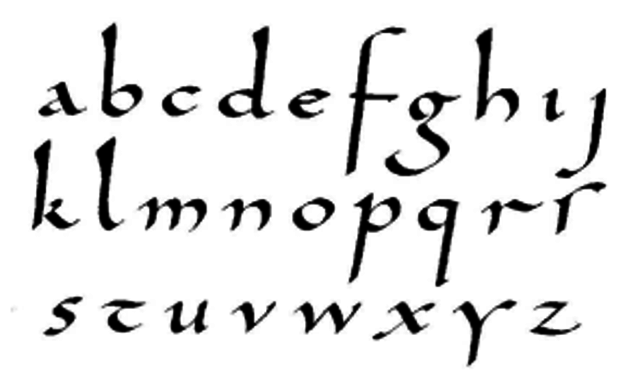 a b c d e f g h ı ȷ
k l m n o p q r ſ
s t u v w x y z